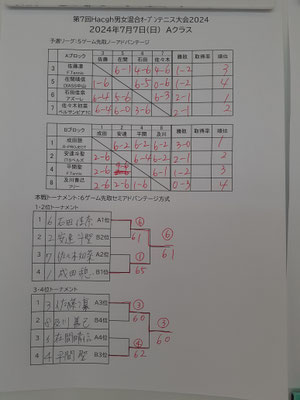 第7回Hacgh男女混合ｵｰﾌﾟﾝテニス大会2024
2024年7月7日(日) Aクラス
予選リーグ:6ゲーム先取ノーアドバンテージ
Aブロック 佐藤 左間 石田 佐々木 勝敗 取得率 順位
3 佐藤 6-1 4-6 0-6 1-2 3
5 1-6 2-6 1-2 4
6 石田佳奈 6-4 2-1 1
7 佐々木初菜 6-4 6-0 3-6 2-1 2
Bブロック 成田 安達 平間 及川 勝敗 取得率 順位
1 成田 6-2 6-2 6-2 3-0 1
2 安達斗聖 2-6 6-4 6-2 2-1 2
4 平間聖 2-6 6-1 1-2 3
8 及川喜己 2-6 2-6 1-6 0-3 4
本戦トーナメント:6ゲーム先取セミアドバンテージ方式
1-2位トーナメント
1 6 石田佳奈 A1位
2 2 安達斗聖 B2位
3 7 佐々木初菜 A2位
4 1 成田 B1位
⑥
61
①
65
⑥
61
3-4位トーナメント
1 3 佐藤 A3位
2 8 及川喜己 B4位
3 5 A4位
4 4 平間聖 B3位
③
60
④
62
③
60